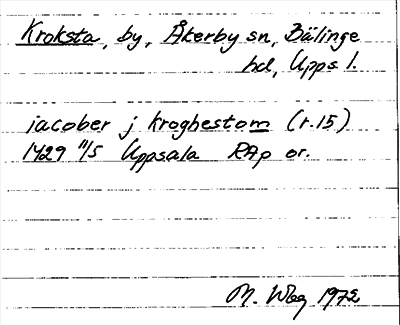 Kroksta, by, Åkerby sn, Bälinge
hd, Upps l.
iacober j kroghestom (r.15)
1429 11/5 Uppsala RAp or.
M. Wbg 1972